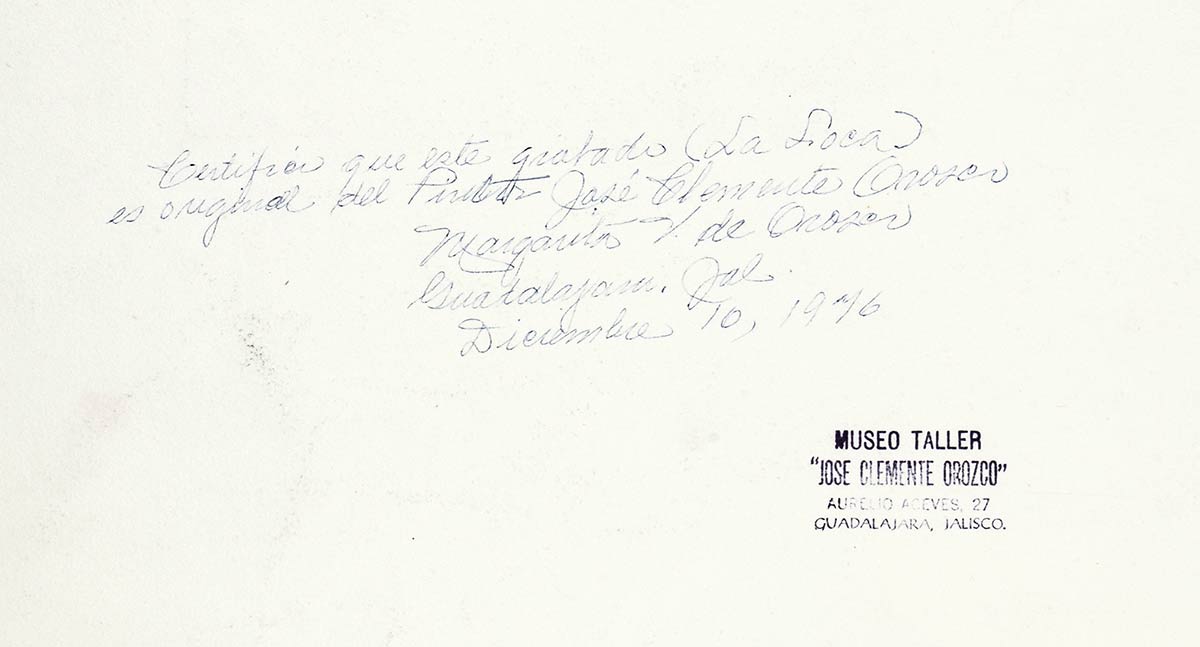 Certifico que este grabado (La Loca)
es original del Pintor José Clemente Orozco
Margarita V. de Orozco
Guadalajara, Jal.
Diciembre 10, 1976
MUSEO TALLER
"JOSE CLEMENTE OROZCO"
AURELIO ACEVES, 27
GUADALAJARA, JALISCO.